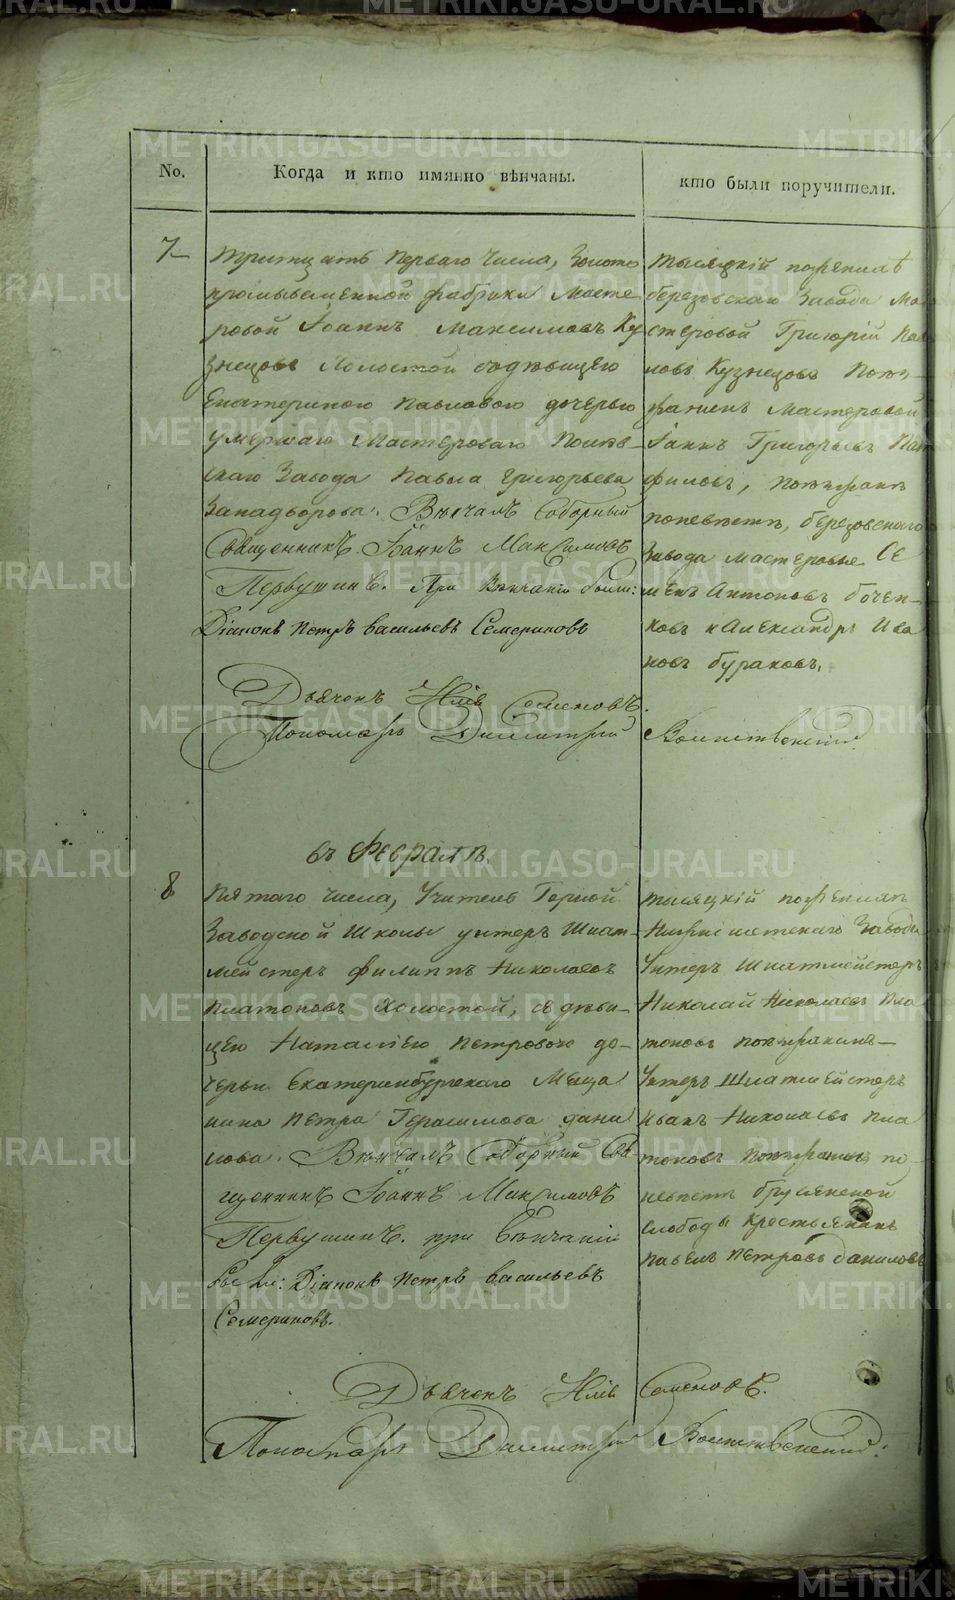 METRIKI.GASO-URAL.RU
No.
Когда и кто имянно вѣнчаны.
кто были поручители.
7
тритцать перваго числа, Золото
промываленной фабрики Масте
ровой Iоаннъ Максимовъ Ку
знецовъ холостой съ дѣвицею
Екатериною Павловою дочерью
умершаго Мастероваго
скаго Завода Павла Григорьева
Западворова. Вѣнчалъ Соборный
Священникъ Iоаннъ Максимовъ
Первушинъ. При Вѣнчаніи были:
Діаконъ Петръ Васильевъ Семериковъ
Дьячокъ Семеновъ.
Пономарь Димитрій
тысяцкій по женихѣ
березовскаго Завода Ма
стеровой Григорій
новъ Кузнецовъ
Мастеровой
Григорьевъ
филовъ,
по невѣстѣ, березовскаго
Завода мастеровые Се
менъ Антоновъ бочен
ковъ и Александръ Ива
новъ бураковъ.
въ Февралѣ.
8
Пятаго числа, Учитель Горной
Заводской Школы унтеръ Шихт
мейстеръ филиппъ Николаевъ
Платоновъ Холостой, съ дѣви
цею Наталіею Петровою до
черью Екатеринбургскаго Меща
нина Петра Герасимова Дани
лова. Вѣнчалъ Соборный Свя
щенникъ Iоаннъ Максимовъ
Первушинъ. при Вѣнчаніи
были: Діаконъ Петръ Васильевъ
Семериковъ.
Дьячокъ Семеновъ.
Пономарь Димитрій
тысяцкій по женихѣ
Нижнеисетскаго Завода
Унтеръ Шихтмейстеръ
Николай Николаевъ Пла
тоновъ поѣзжанинъ
Унтеръ Шихтмейстеръ
Иванъ Николаевъ Пла
тоновъ поѣзжаный по
невѣстѣ Брусянской
слободы Крестьянинъ
Павелъ Петровъ Даниловъ